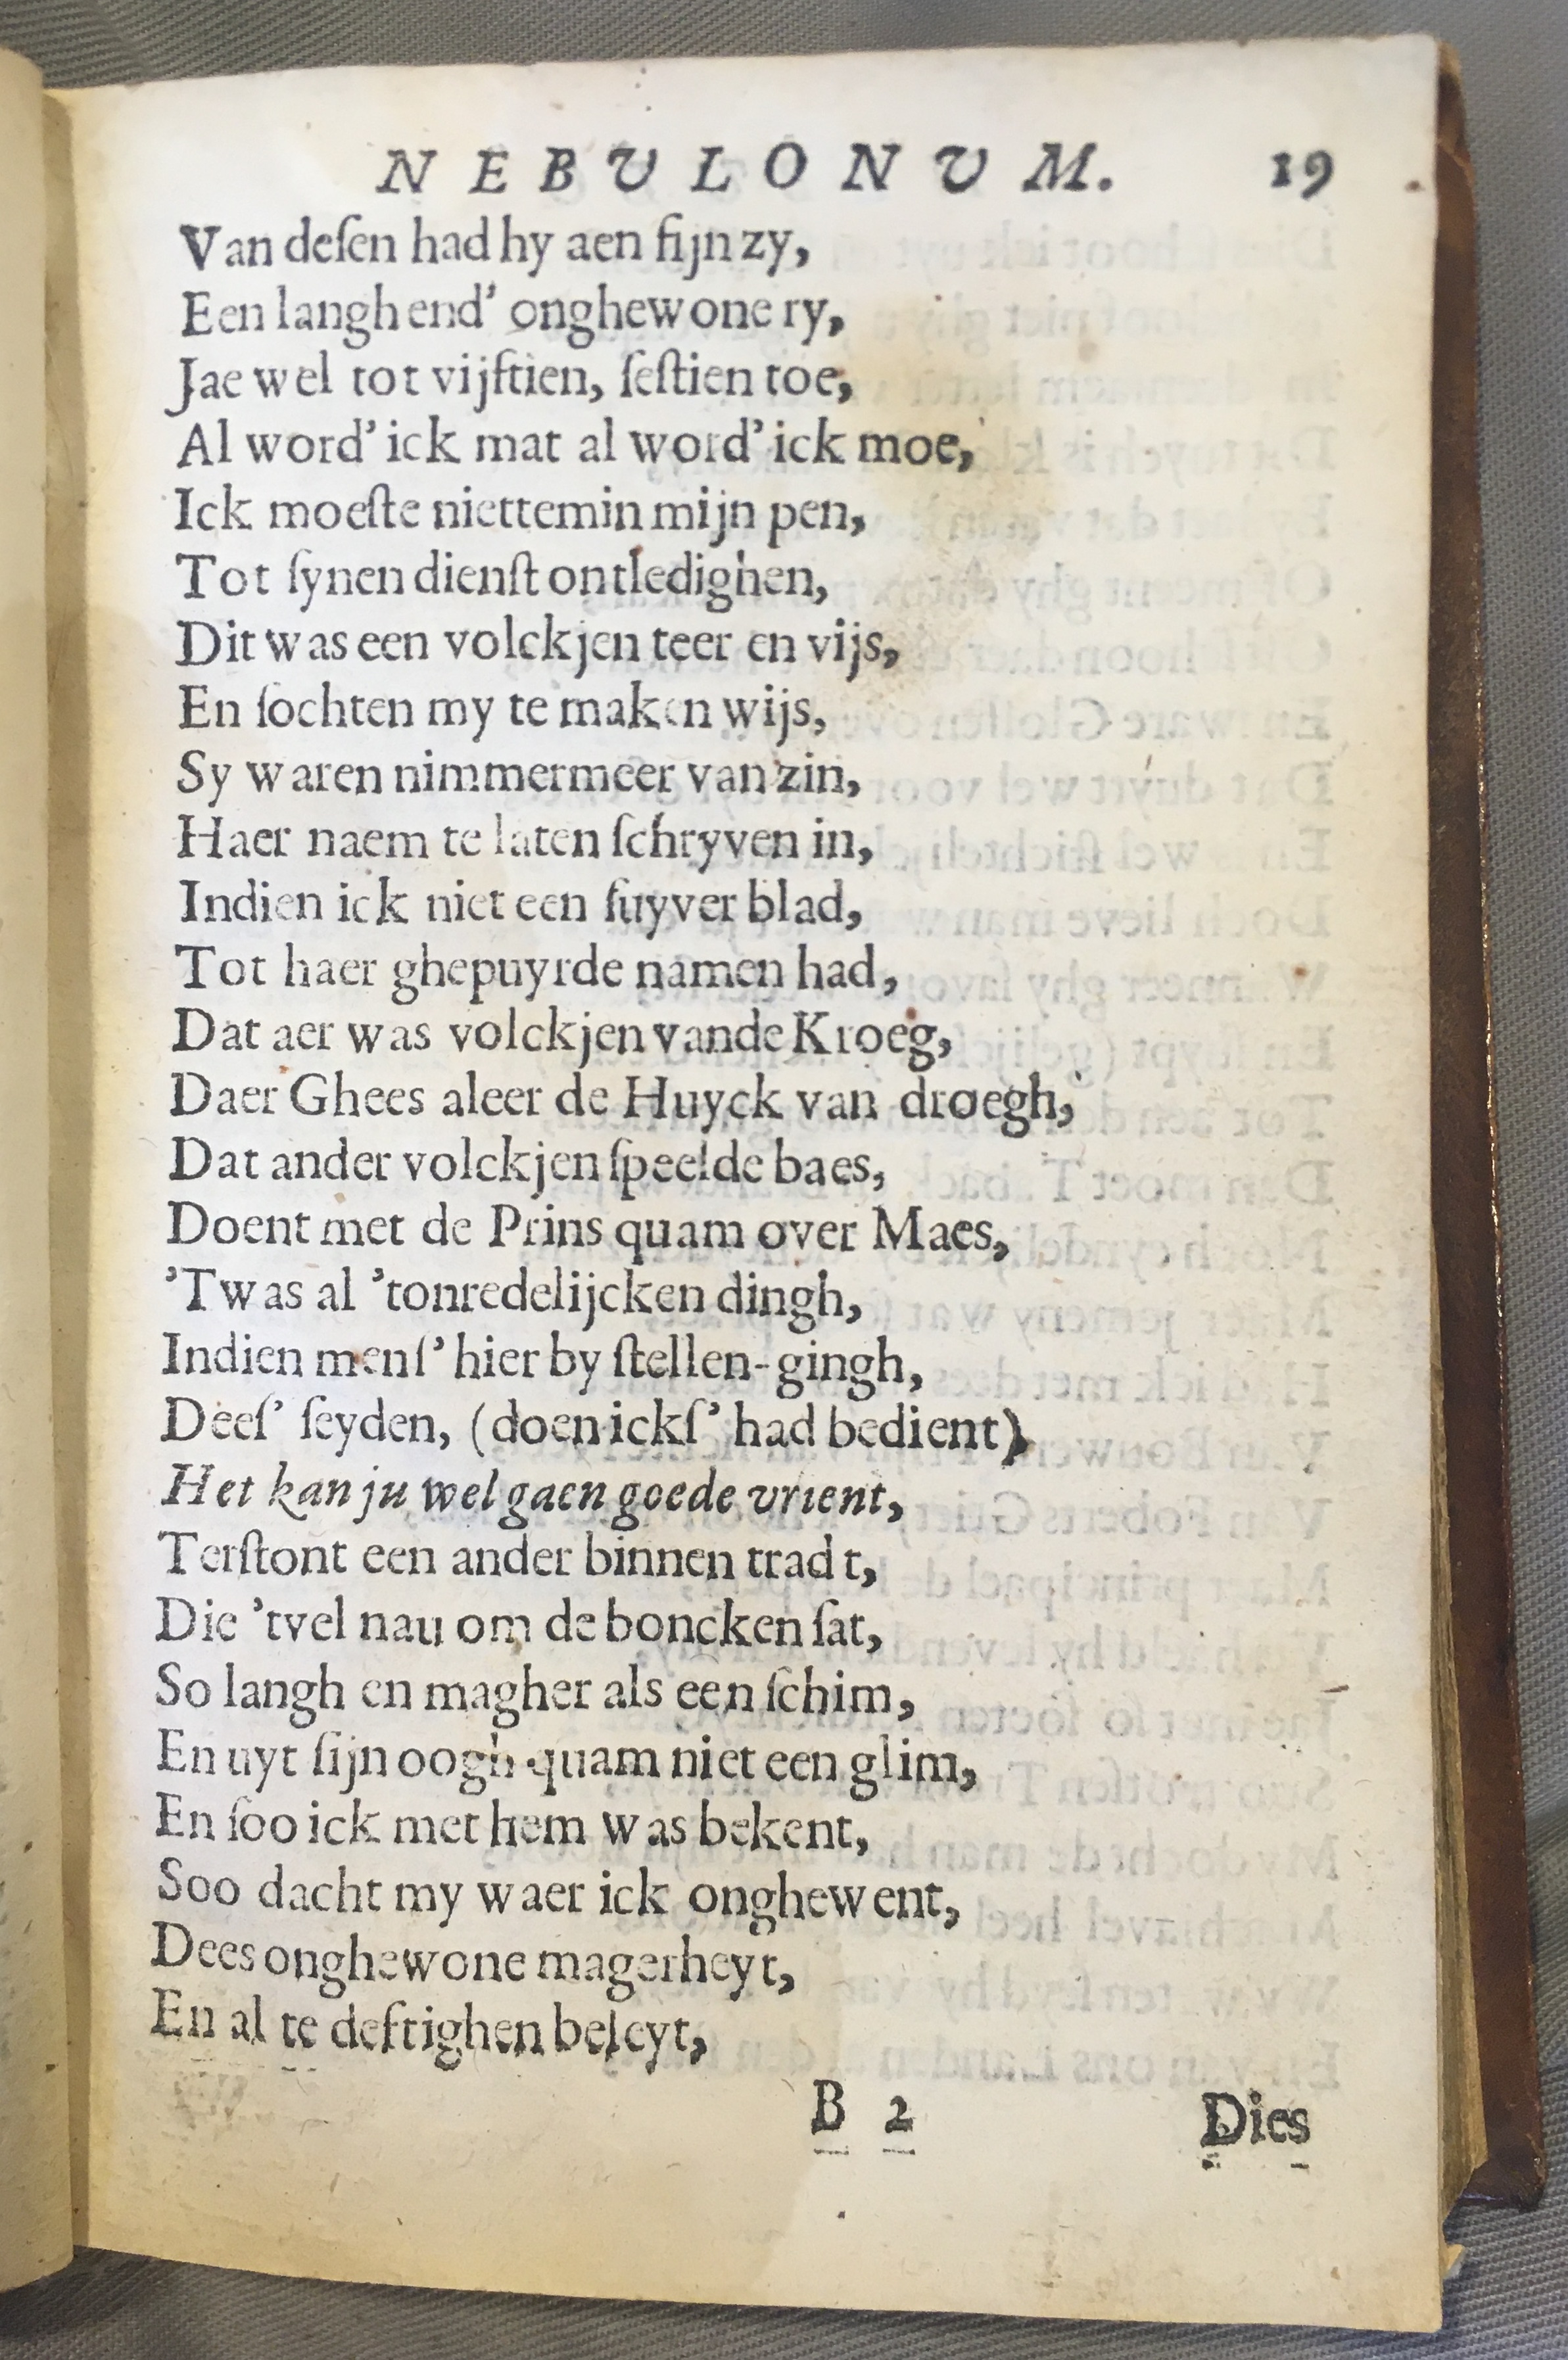 NEBULONUM. 19
Van deſen had hy aen ſijn zy,
Een langh end' onghewone ry,
Jae wel tot vijftien, ſeſtien toe,
Al word' ick mat al word' ick moe,
Ick moeſte niettemin mijn pen,
Tot ſynen dienſt ontledighen,
Dit was een volckjen teer en vijs,
En ſochten my te maken wijs,
Sy waren nimmermeer van zin,
Haer naem te laten ſchryven in,
Indien ick niet een ſuyver blad,
Tot haer ghepuyrde namen had,
Dat aer was volckjen vande Kroeg,
Daer Ghees aleer de Huyck van droegh,
Dat ander volckjen ſpeelde baes,
Doent met de Prins quam over Maes,
'Twas al 'tonredelijcken dingh,
Indien menſ' hier by ſtellen-gingh,
Deeſ' ſeyden, (doen ickſ' had bedient)
Het kan ju wel gaen goede vrient,
Terſtont een ander binnen tradt,
Die 'tvel nau om de boncken ſat,
So langh en magher als een ſchim,
En uyt ſijn oogh quam niet een glim,
En ſoo ick met hem was bekent,
Soo dacht my waer ick onghewent,
Dees onghewone magerheyt,
En al te deftighen beleyt,
B 2 Dies